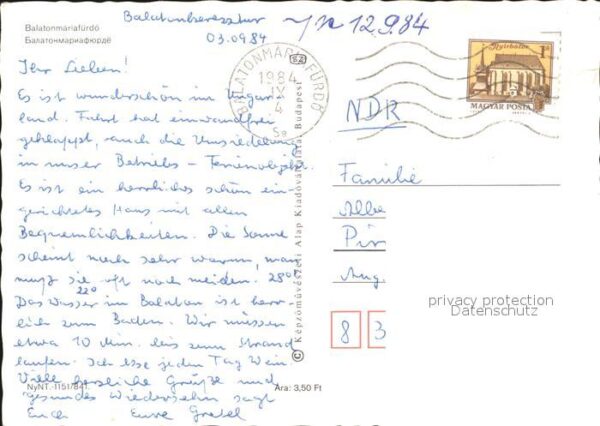 Balatonmariafürdő
Балатонмариафюрдё
Balatonkeresztur
03.09.84
12.9.84
Ihr Lieben!
Es ist wunderschön im Ungar
land. Fahrt hat einwandfrei
geklappt, auch die Umsiedelung
in unser Betriebs-Ferienobjekt.
Es ist ein herrliches schön ein-
gerichtetes Haus mit allen
Bequemlichkeiten. Die Sonne
scheint noch sehr warm, man
muß sie oft noch meiden. 28°
22°
Das Wasser im Balaton ist herr-
lich zum Baden. Wir müssen
etwa 10 Min. bis zum Strand
laufen. Ich esse jeden Tag Wein.
Viele herzliche Grüße und
gesundes Wiedersehn sagt
Euch Eure Gretel
NyNT.-1151/841.
Ara: 3,50 Ft
© Képzőművészeti Alap Kiadóvállalata, Budapest
BALATONMARIAFÜRDŐ
1984
IX
4
Nyírbátor
1Ft
MAGYAR POSTA
NDR
Familie
Albe
Pir
Aug.
8 3
privacy protection
Datenschutz